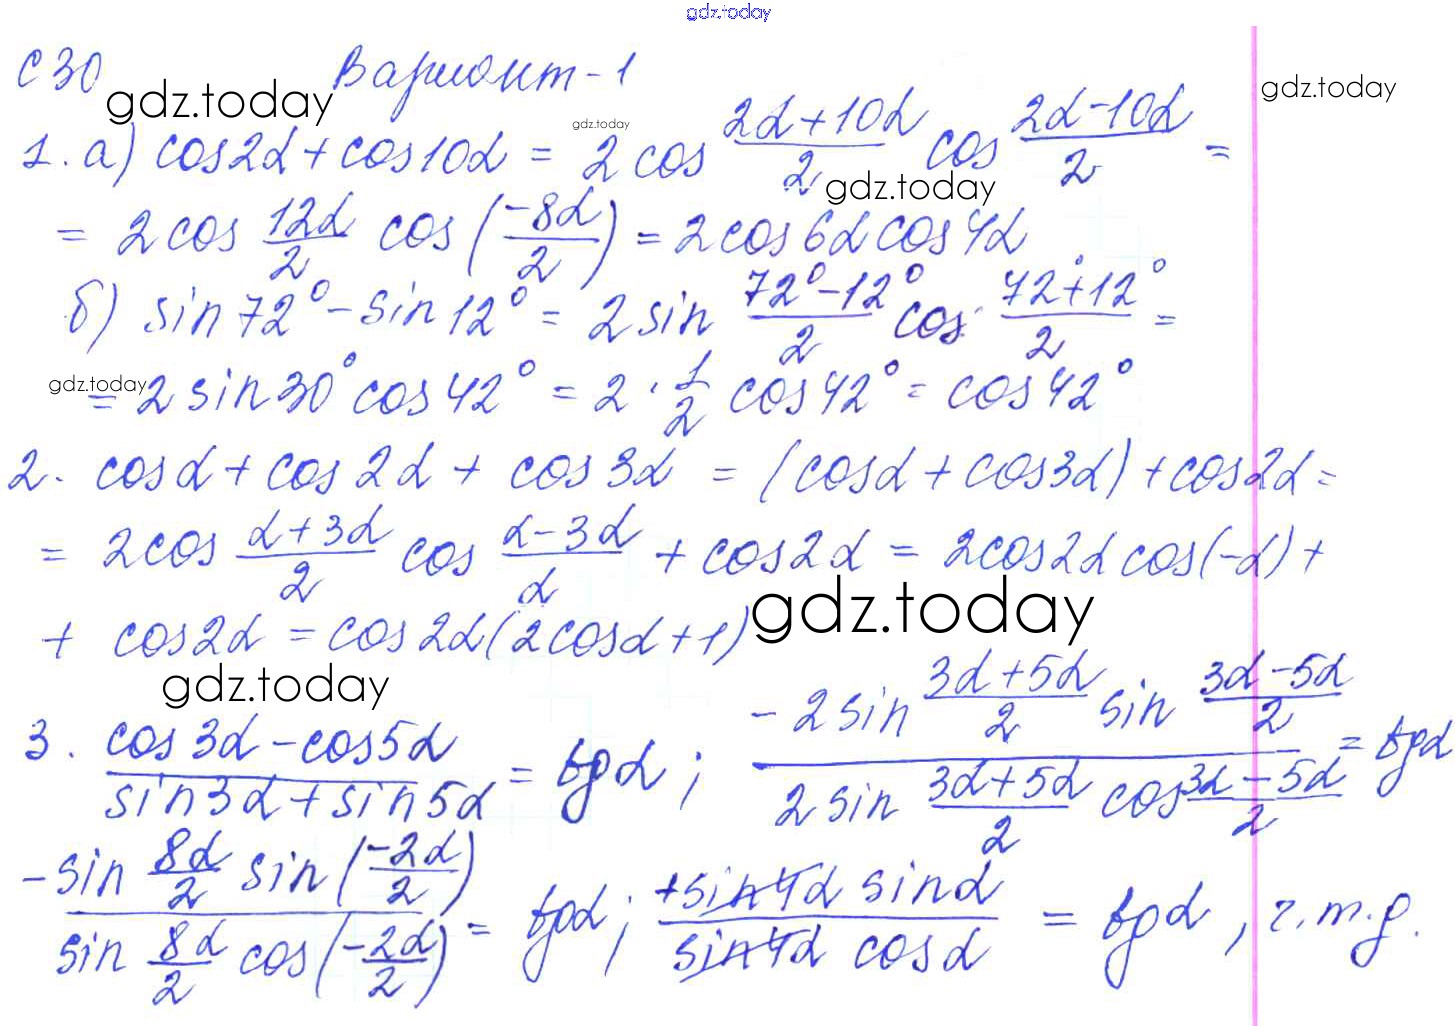 gdz.today
С30 Вариант-1
gdz.today gdz.today gdz.today
1. а) cos2α + cos10α = 2 cos (2α+10α)/2 cos (2α-10α)/2 =
gdz.today
= 2 cos 12α/2 cos (-8α/2) = 2 cos 6α cos 4α
б) sin 72° - sin 12° = 2 sin (72°-12°)/2 cos (72°+12°)/2 =
gdz.today
= 2 sin 30° cos 42° = 2 · 1/2 cos 42° = cos 42°
2. cosα + cos 2α + cos 3α = (cosα + cos3α) + cos2α =
= 2cos (α+3α)/2 cos (α-3α)/α + cos2α = 2cos2α cos(-α) +
+ cos2α = cos2α(2cosα+1)
gdz.today
gdz.today
3. (cos 3α - cos5α)/(sin3α + sin5α) = tgα; (-2 sin (3α+5α)/2 sin (3α-5α)/2)/(2 sin (3α+5α)/2 cos (3α-5α)/2) = tgα
(-sin 8α/2 sin (-2α/2))/(sin 8α/2 cos (-2α/2)) = tgα; (+sin4α sinα)/(sin4α cosα) = tgα, ч.т.д.